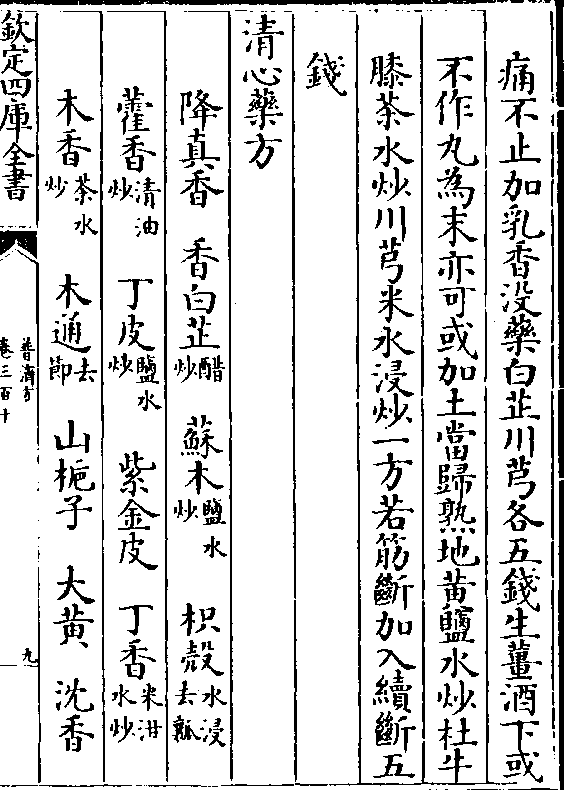 痛不止加乳香没藥白芷川芎各五錢生薑酒下或
不作丸為末亦可或加土當歸熟地黄鹽水炒杜牛
膝茶水炒川芎米水浸炒一方若筋斷加入續斷五
錢
清心藥方
降真香　香白芷醋炒　蘇木鹽水炒　枳殻水浸去瓤
藿香清油炒　丁皮鹽水炒　紫金皮　丁香米泔水炒
木香茶水炒　木通去節　山梔子　大黄　沈香
欽定四庫全書
普濟方
卷三百十
九